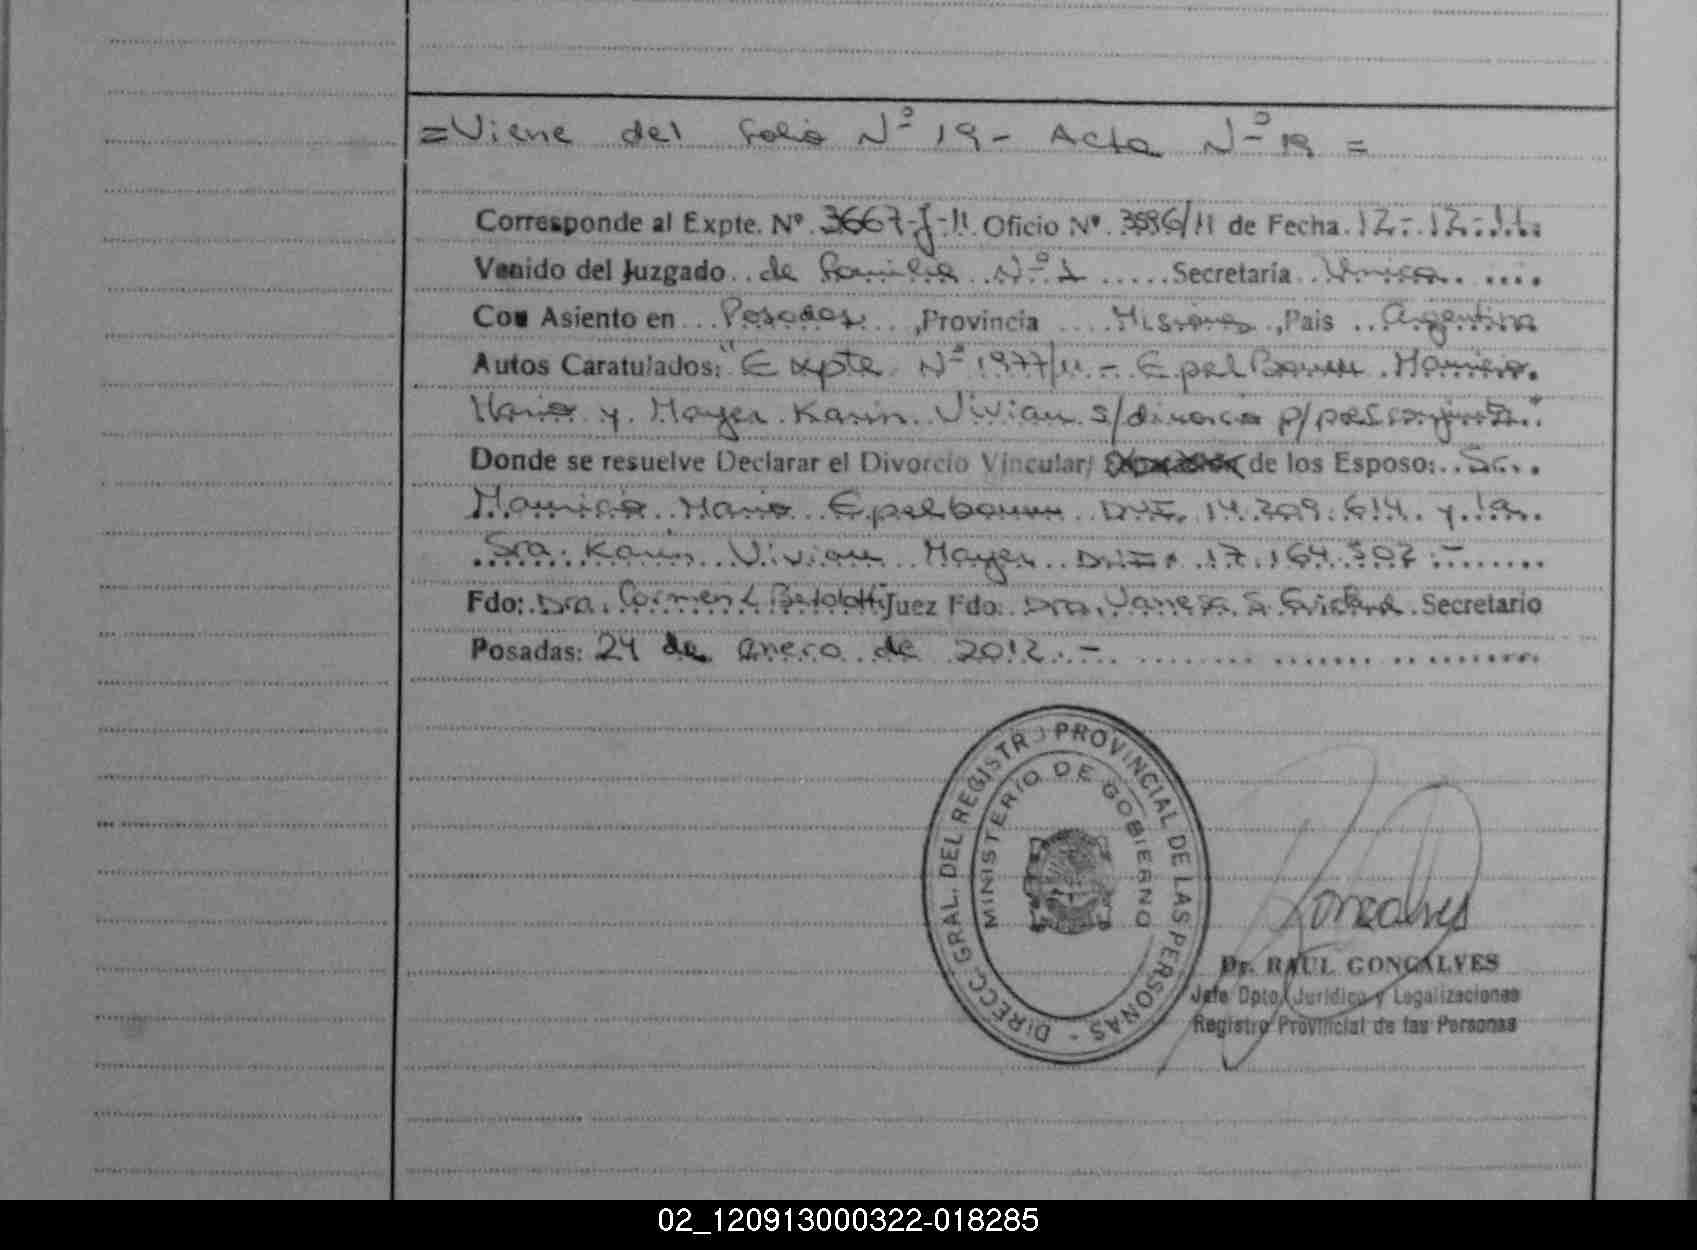 =Viene del folio Nº 19 - Acta Nº 19 =
Corresponde al Expte. Nº 3667-J-11 Oficio Nº 3586/11 de Fecha 12-12-11.
Venido del Juzgado de Familia Nº 1 Secretaría Unica
Con Asiento en Posadas, Provincia Misiones, Pais Argentina
Autos Caratulados: "Expte Nº 1977/11.- Epelbaum Mauricio
Mario y Mayer Karin Vivian s/divorcio p/pres conjunta."
Donde se resuelve Declarar el Divorcio Vincular/ de los Esposo: Sr.
Mauricio Mario Epelbaum DNI. 14.209.614 y la
Sra. Karin Vivian Mayer DNI. 17.164.302.-
Fdo: Dra. Carmen L Juez Fdo. Dra. Vanesa S. Secretario
Posadas: 24 de enero de 2012.-
DIRECC. GRAL. DEL REGISTRO PROVINCIAL DE LAS PERSONAS -
MINISTERIO DE GOBIERNO
Goncalves
Dr. RAUL GONÇALVES
Jefe Dpto. Jurídico y Legalizaciones
Registro Provincial de las Personas
02_120913000322-018285